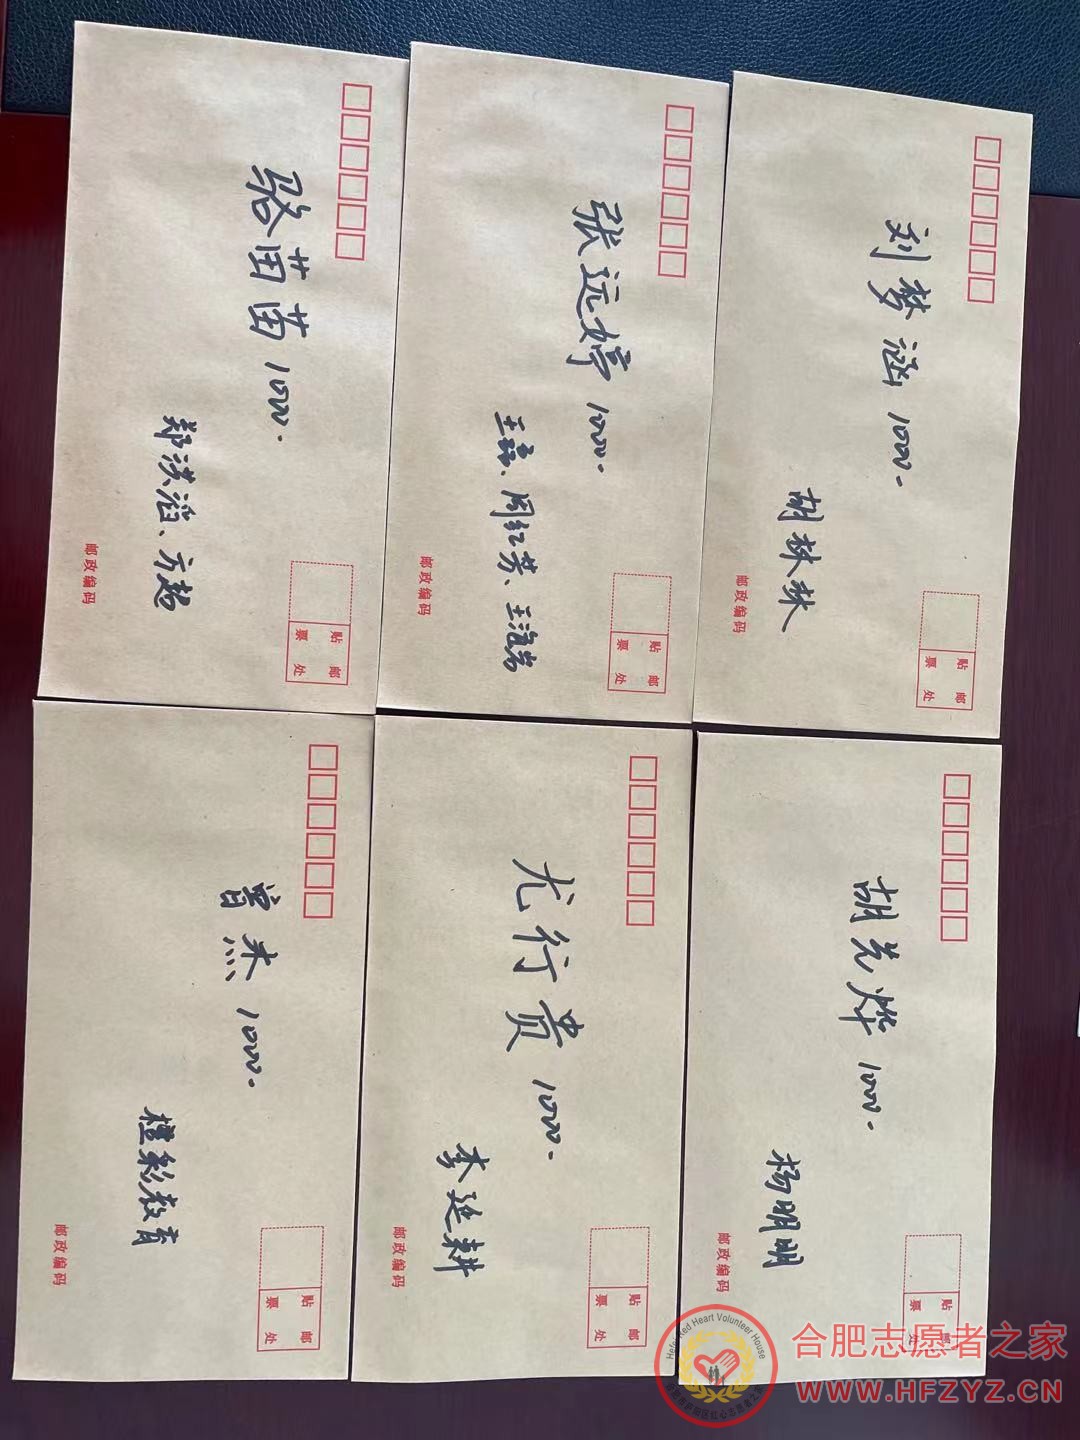 骆苗苗 1000.
郑洪滔、方超
邮政编码
贴邮
票处
张远婷 1000.
王磊、周红芳、王海芳
邮政编码
贴邮
票处
刘梦涵 1000.
胡林林
邮政编码
贴邮
票处
曾杰 1000.
橙彩教育
邮政编码
贴邮
票处
尤行贵 1000.
李延耕
邮政编码
贴邮
票处
胡光烨 1000.
杨明明
邮政编码
贴邮
票处
Hefei Red Heart Volunteer House
合肥志愿者之家
WWW.HFZYZ.CN